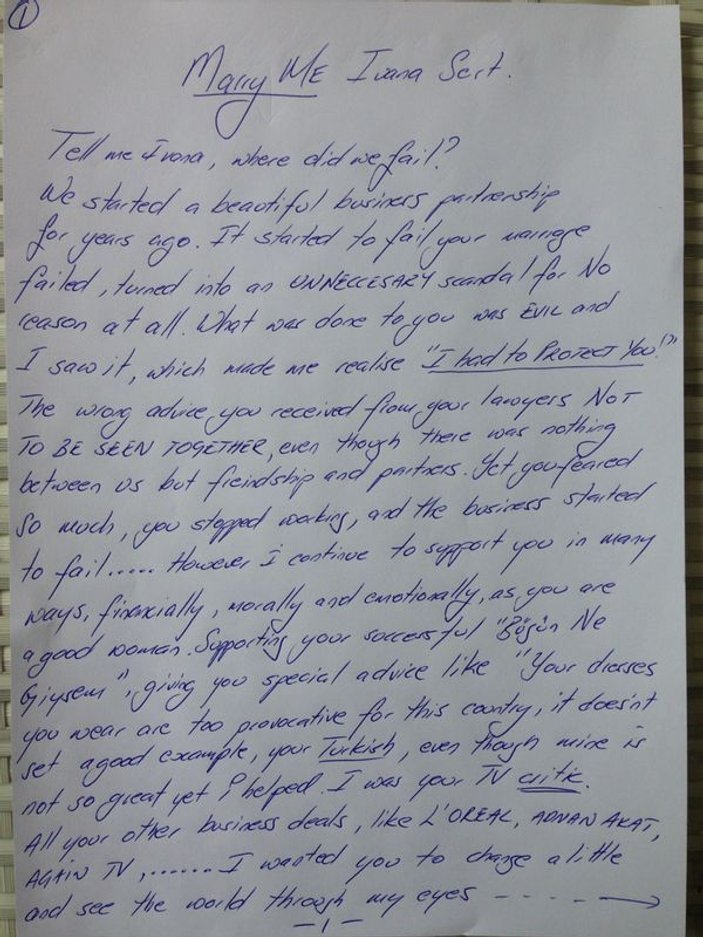 1
Marry ME Ivana Sert.
Tell me Ivana, where did we fail?
We started a beautiful business partnership
for years ago. It started to fail, your marriage
failed, turned into an UNNECCESARY scandal for NO
reason at all. What was done to you was EVIL and
I saw it, which made me realise "I had to PROTECT YOU!?"
The wrong advice, you received from your lawyers NOT
TO BE SEEN TOGETHER, even though there was nothing
between us but freindship and partners. Yet you feared
so much, you stopped working, and the business started
to fail..... However I continue to support you in many
ways, financially, morally and emotionally, as you are
a good woman. Supporting your successful "Bügün Ne
Giysem", giving you special advice like "Your dresses
you wear are too provocative for this country, it doesn't
set a good example, your Turkish, even though mine is
not so great yet I helped. I was your TV critic.
All your other business deals, like L'OREAL, ADNAN AKAT,
AGAIN TV,...... I wanted you to change a little
and see the world through my eyes - - - - →
-1-